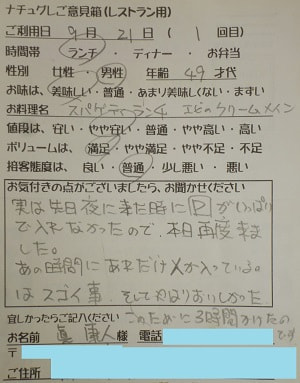 ナチュグしご意見箱(レストラン用)
ご利用日 9月 21日 ( 1 回目)
時間帯 ランチ ・ ディナー ・ お弁当
性別 女性 ・ 男性 年齢 49 才代
お味は、美味しい・普通・あまり美味しくない・まずい
お料理名 スパゲティーランチ エビのクリームメイン
値段は、安い・やや安い・普通・やや高い・高い
ボリュームは、満足・やや満足・やや不足・不足
接客態度は、 良い・普通・少し悪い・悪い
お気付きの点がございましたら、お聞かせください
実は先日夜に来た時に P がいっぱい
で入れなかったので、本日再度来ま
した。
あの時間にあれだけ人が入っている。
はスゴイ事、そしてやはりおいしかった。
宜しかったらご記入ください このために3時間かけたの
です
お名前 様 電話
〒
ご住所